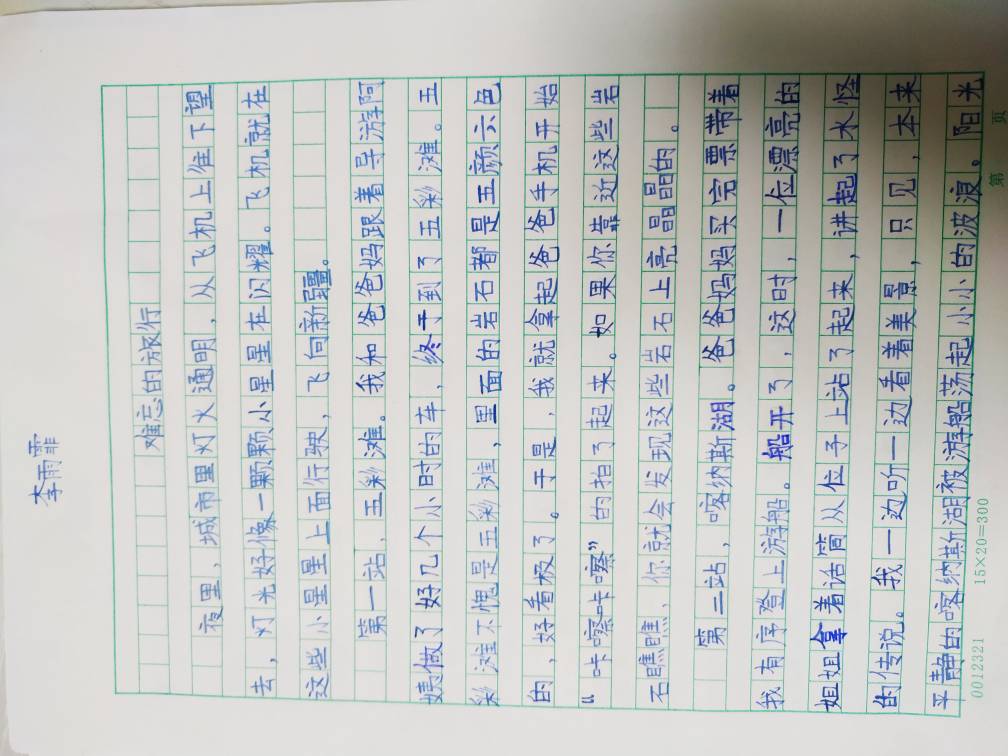 李雨霏
难忘的旅行
夜里，城市里灯火通明，从飞机上往下望
去，灯光好像一颗颗小星星在闪耀。飞机就在
这些小星星上面行驶，飞向新疆。
第一站，五彩滩。我和爸爸妈妈跟着导游阿
姨做了好几个小时的车，终于到了五彩滩。五
彩滩不愧是五彩滩，里面的岩石都是五颜六色
的，好看极了。于是，我就拿起爸爸手机开始
“咔嚓咔嚓”的拍了起来。如果你靠近这些岩
石瞧瞧，你就会发现这些岩石上亮晶晶的。
第二站，喀纳斯湖。爸爸妈妈买完票带着
我有序登上游船。船开了，这时，一位漂亮的
姐姐拿着话筒从位子上站了起来，讲起了水怪
的传说。我一边听一边看着美景，只见，本来
平静的喀纳斯湖被游船荡起小小的波浪。阳光
0012321 15×20=300 第 页